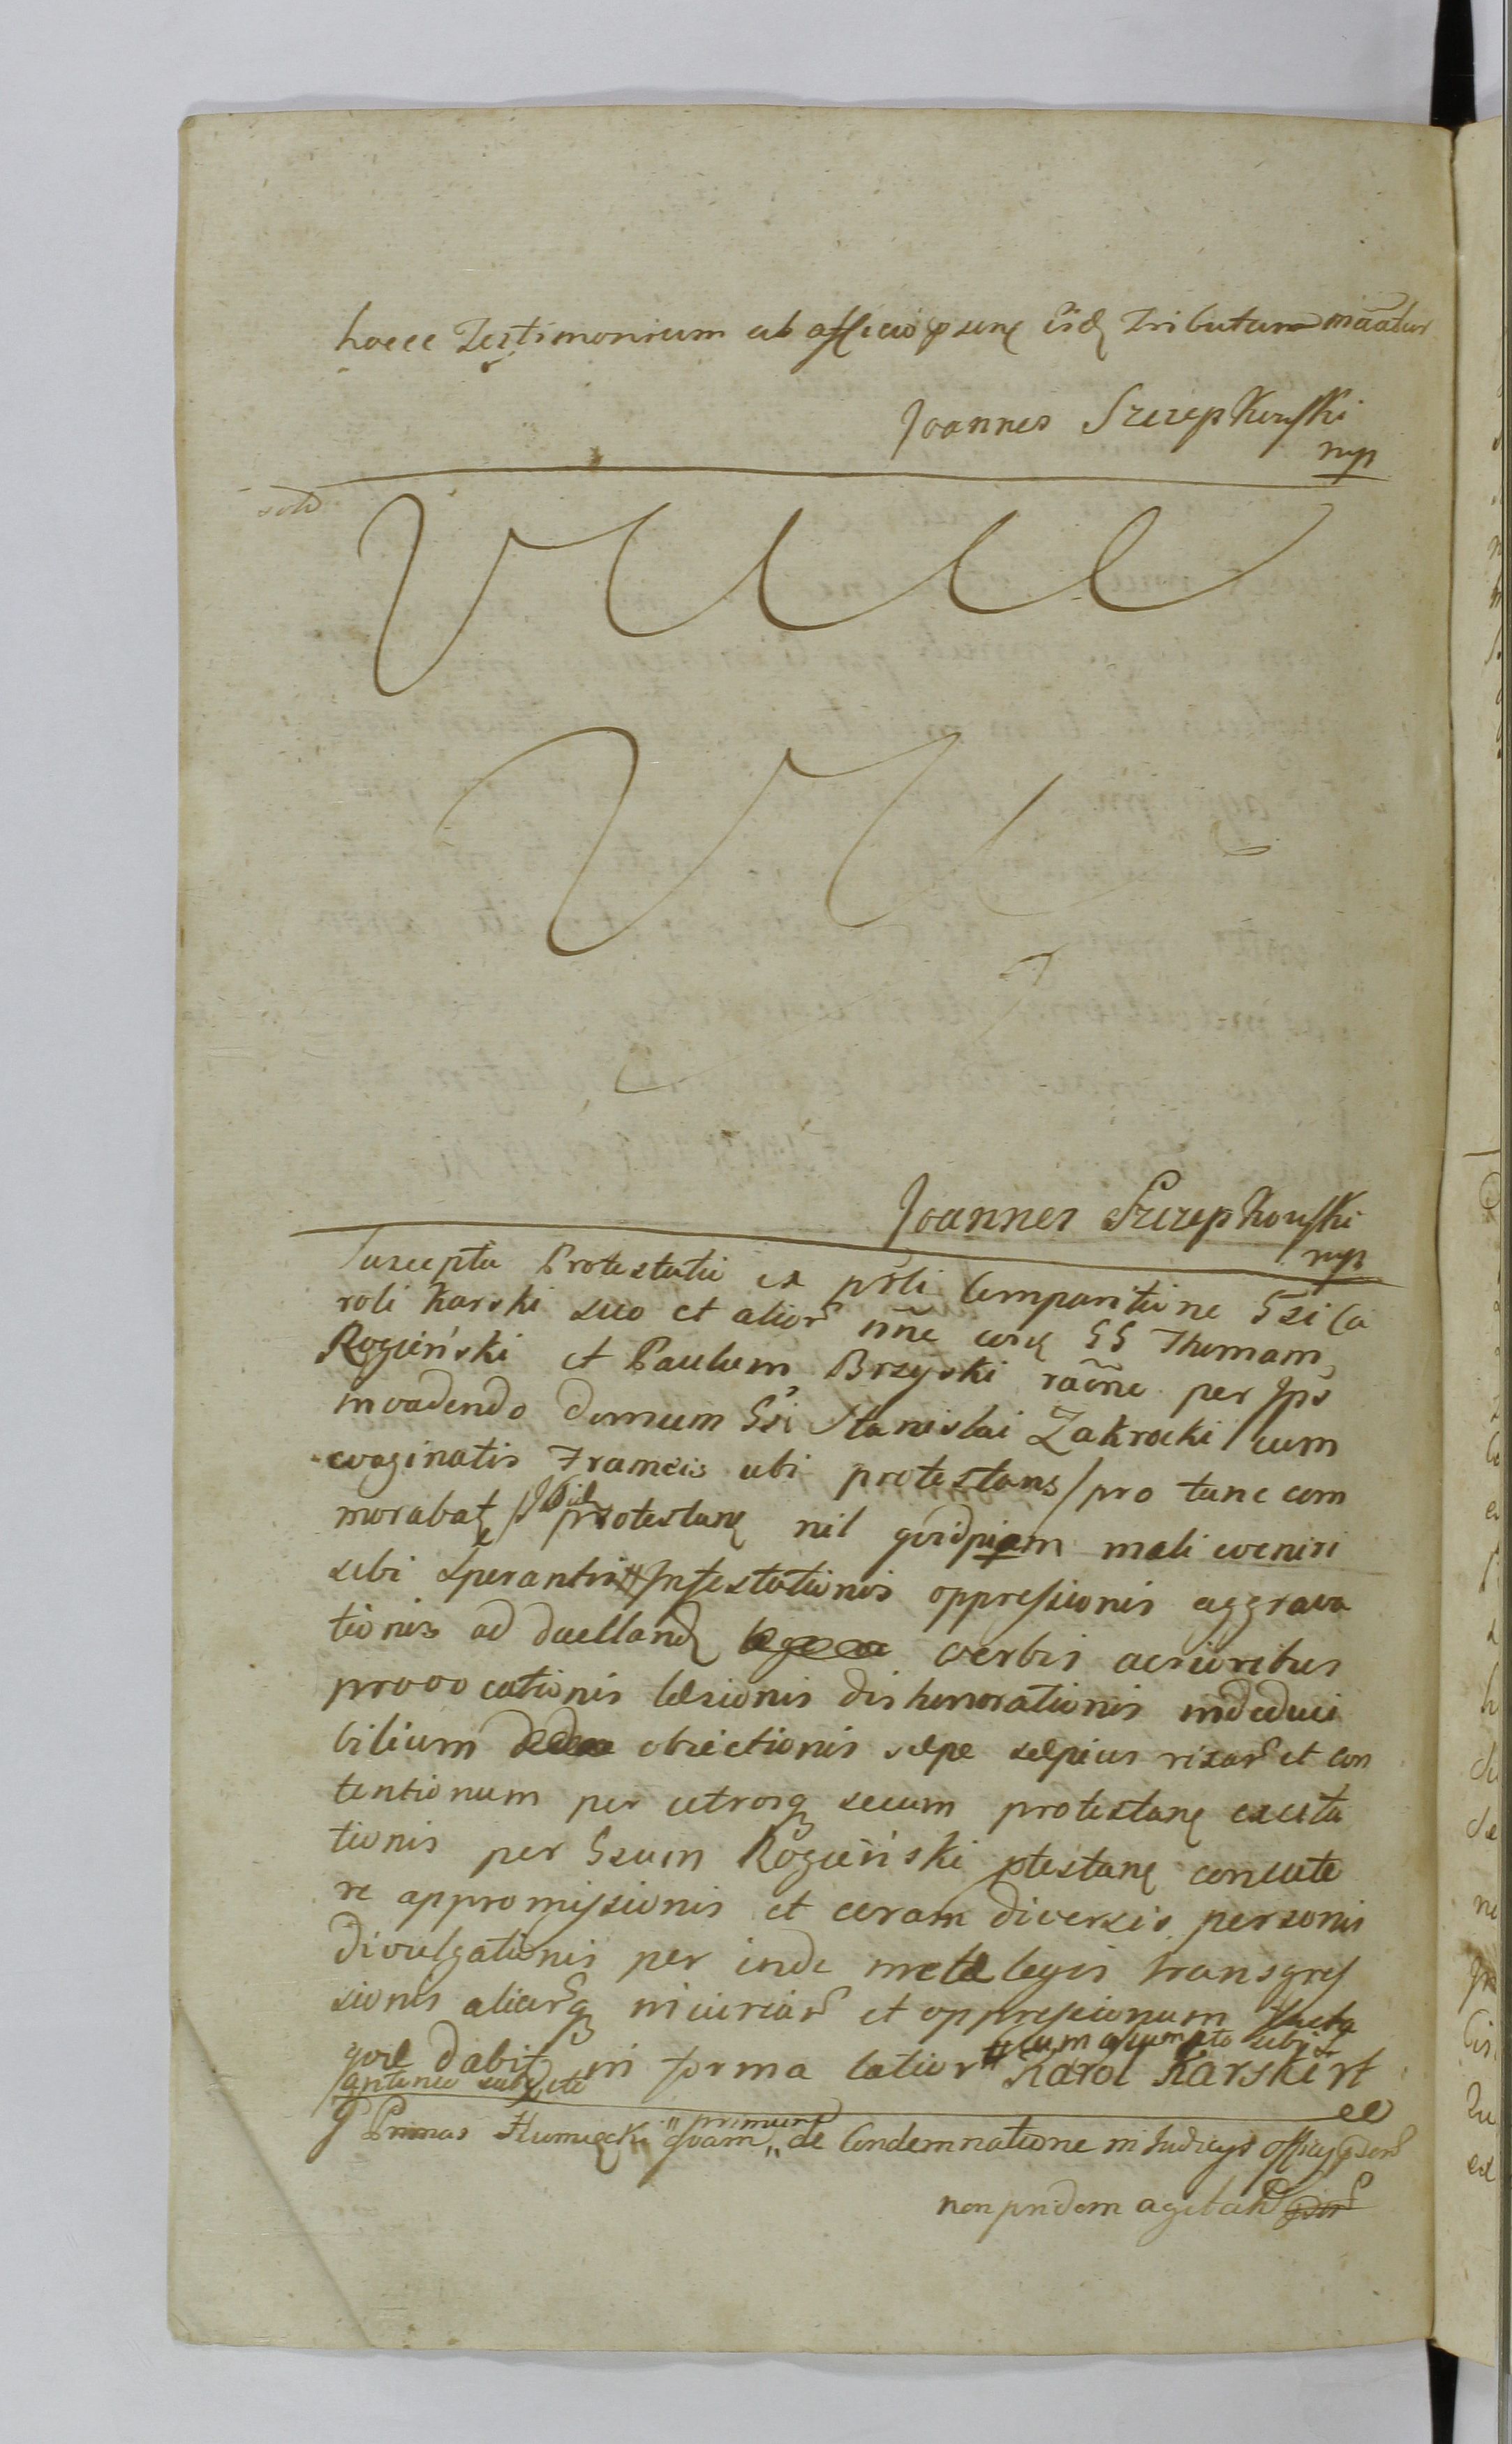 haece Testimonium ab officio psenq eidq Tributum maatur
Joannes Szczepkowski
mp
solt
Joannes Szczepkowski
mp
Suscepta Protestatio ex psli Comparitione Gsi Ca
roli Karski suo et alior nñe corq GG Thomam
Rogieński et Paulum Brzyski raõne per Ips
invadendo domum Gsi Stanislai Zakrocki cum
evaginatis Frameis ubi protestans / pro tunc com
morabatq / Ibid protestanq nil qvidpiam mali eveniri
sibi sperantis # Infestationis oppressionis aggrava
tionis ad duellandq verbis acrioribus
provocationis lesionis dishonorationis indeduci
bilium obiectionis sepe sepius rixar et con
tentionum per utrosq secum protestanq excita
tionis per Gsum Rogieński ptestanq concute
re appromissionis et coram diversis personis
divulgationis per inde metae legis transgres
sionis aliarq iniuriar et oppressionum facta
# Cum assumpto sibi
qvae dabit in forma latior # Karol Karski rt
Antonio
G Primas Humięcki "primum
qvam" de Condemnatione in Judicys officy qsent
non pridem agebatr